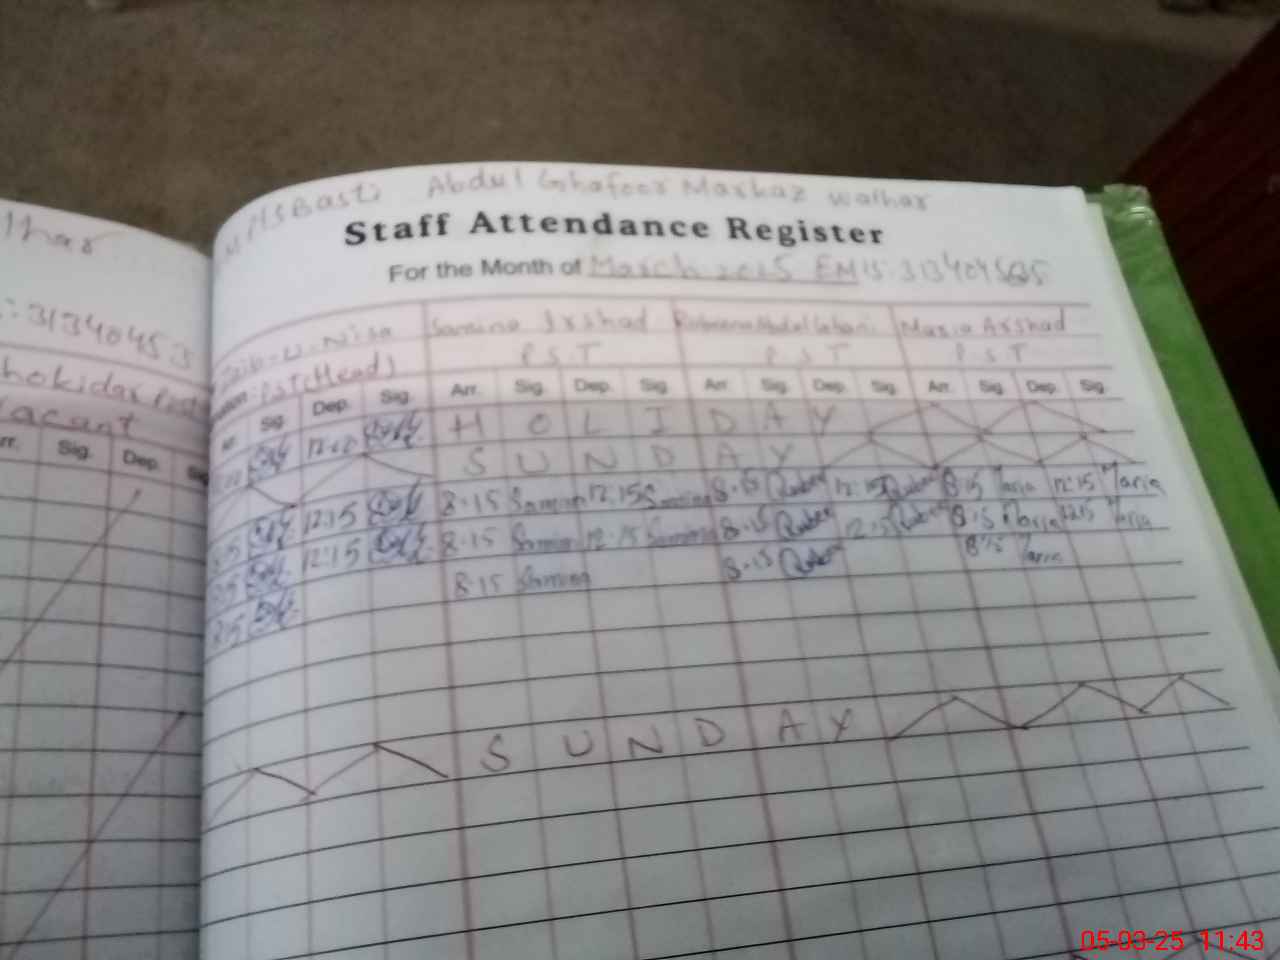 lhar
:31340453
hokidar Post
Vacant
rr. Sig. Dep. Sig
MSBasti Abdul Ghafoor Markaz walhar
Staff Attendance Register
For the Month of March 2025 EMIS:
Zaib-U-Nisa Samina Irshad Rubeena Abdul Ghani Maria Arshad
PST(Head) P.S.T P.S.T P.S.T
Arr. Sig. Dep. Sig. Arr. Sig. Dep. Sig. Arr. Sig. Dep. Sig. Arr. Sig. Dep. Sig.
HOLIDAY
SUNDAY
12:15 8-15 Samina 12:15 Samina 8-15 Rubee 12:15 Rubee 8:15 Maria 12:15 Maria
12:15 8-15 Samina 12-15 Samina 8-15 Rubee 12:15 Rubee 8:15 Maria 12:15 Maria
8:15 8-15 Samina 8-15 Rubee 8:15 Maria
SUNDAY
05-03-25 11:43